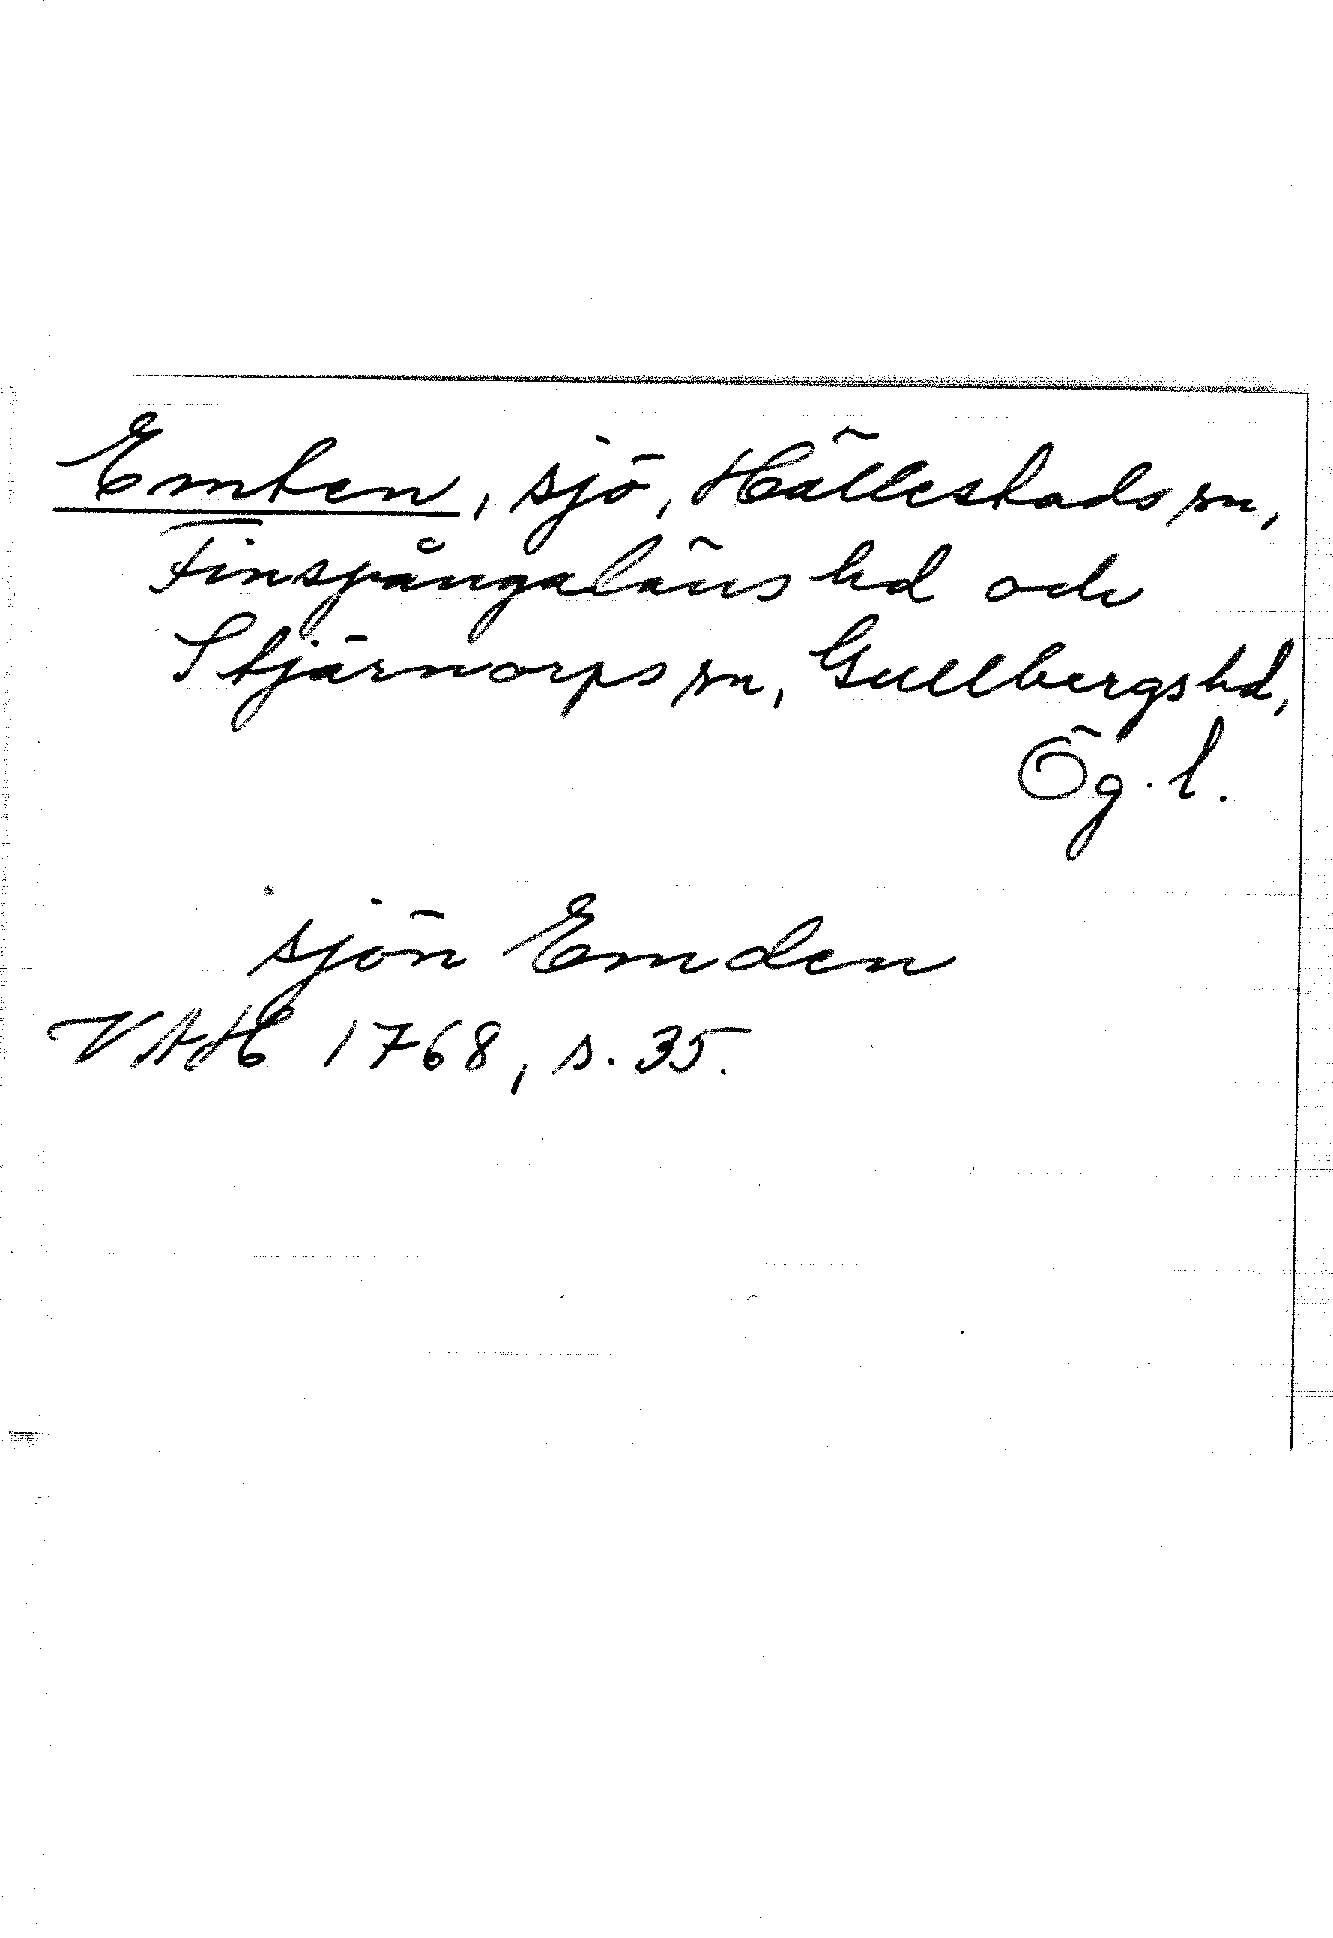 Emten, sjö, Hällestads sn,
Finspångaläns hd och
Stjärnorps sn, Gullbergs hd,
Ög. l.
sjön Emden
VAH 1768, s. 35.